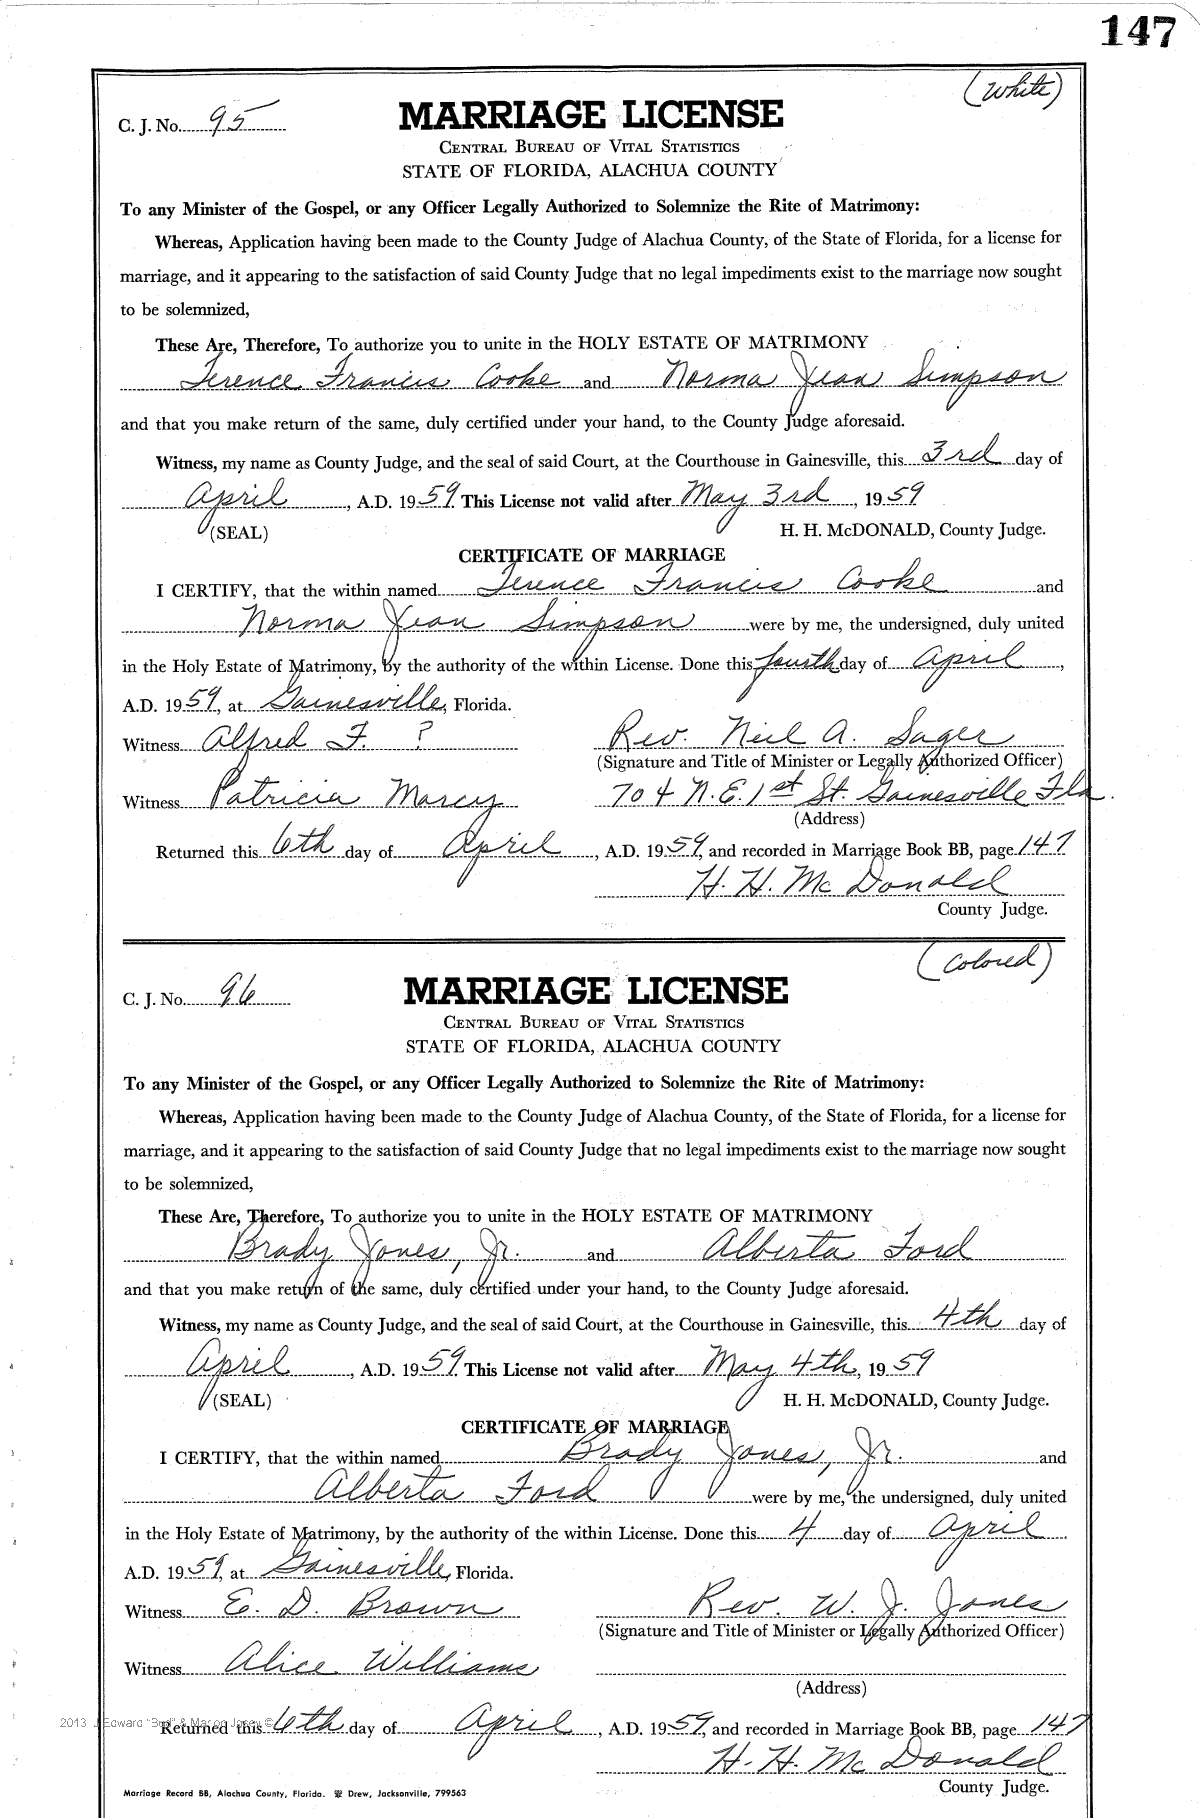 147
(White)
C. J. No. 95
MARRIAGE LICENSE
CENTRAL BUREAU OF VITAL STATISTICS
STATE OF FLORIDA, ALACHUA COUNTY
To any Minister of the Gospel, or any Officer Legally Authorized to Solemnize the Rite of Matrimony:
Whereas, Application having been made to the County Judge of Alachua County, of the State of Florida, for a license for
marriage, and it appearing to the satisfaction of said County Judge that no legal impediments exist to the marriage now sought
to be solemnized,
These Are, Therefore, To authorize you to unite in the HOLY ESTATE OF MATRIMONY
Terence Francis Cooke and Norma Jean Simpson
and that you make return of the same, duly certified under your hand, to the County Judge aforesaid.
Witness, my name as County Judge, and the seal of said Court, at the Courthouse in Gainesville, this 3rd day of
April, A.D. 1959. This License not valid after May 3rd, 1959
(SEAL) H. H. McDONALD, County Judge.
CERTIFICATE OF MARRIAGE
I CERTIFY, that the within named Terence Francis Cooke and
Norma Jean Simpson were by me, the undersigned, duly united
in the Holy Estate of Matrimony, by the authority of the within License. Done this fourth day of April,
A.D. 1959, at Gainesville, Florida.
Witness Alfred F. ? Rev. Neil A. Sager
(Signature and Title of Minister or Legally Authorized Officer)
Witness Patricia Marcy 704 N.E. 1st St. Gainesville Fla.
(Address)
Returned this 6th day of April, A.D. 1959, and recorded in Marriage Book BB, page 147
H. H. McDonald
County Judge.
(Colored)
C. J. No. 96
MARRIAGE LICENSE
CENTRAL BUREAU OF VITAL STATISTICS
STATE OF FLORIDA, ALACHUA COUNTY
To any Minister of the Gospel, or any Officer Legally Authorized to Solemnize the Rite of Matrimony:
Whereas, Application having been made to the County Judge of Alachua County, of the State of Florida, for a license for
marriage, and it appearing to the satisfaction of said County Judge that no legal impediments exist to the marriage now sought
to be solemnized,
These Are, Therefore, To authorize you to unite in the HOLY ESTATE OF MATRIMONY
Brady Jones, Jr. and Alberta Ford
and that you make return of the same, duly certified under your hand, to the County Judge aforesaid.
Witness, my name as County Judge, and the seal of said Court, at the Courthouse in Gainesville, this 4th day of
April, A.D. 1959. This License not valid after May 4th, 1959
(SEAL) H. H. McDONALD, County Judge.
CERTIFICATE OF MARRIAGE
I CERTIFY, that the within named Brady Jones, Jr. and
Alberta Ford were by me, the undersigned, duly united
in the Holy Estate of Matrimony, by the authority of the within License. Done this 4 day of April
A.D. 1959, at Gainesville, Florida.
Witness E. D. Brown Rev. W. J. Jones
(Signature and Title of Minister or Legally Authorized Officer)
Witness Alice Williams
(Address)
2013 J Edward "Bud" &
Returned this 6th day of April, A.D. 1959, and recorded in Marriage Book BB, page 147
H. H. McDonald
County Judge.
Marriage Record BB, Alachua County, Florida. Drew, Jacksonville, 799563